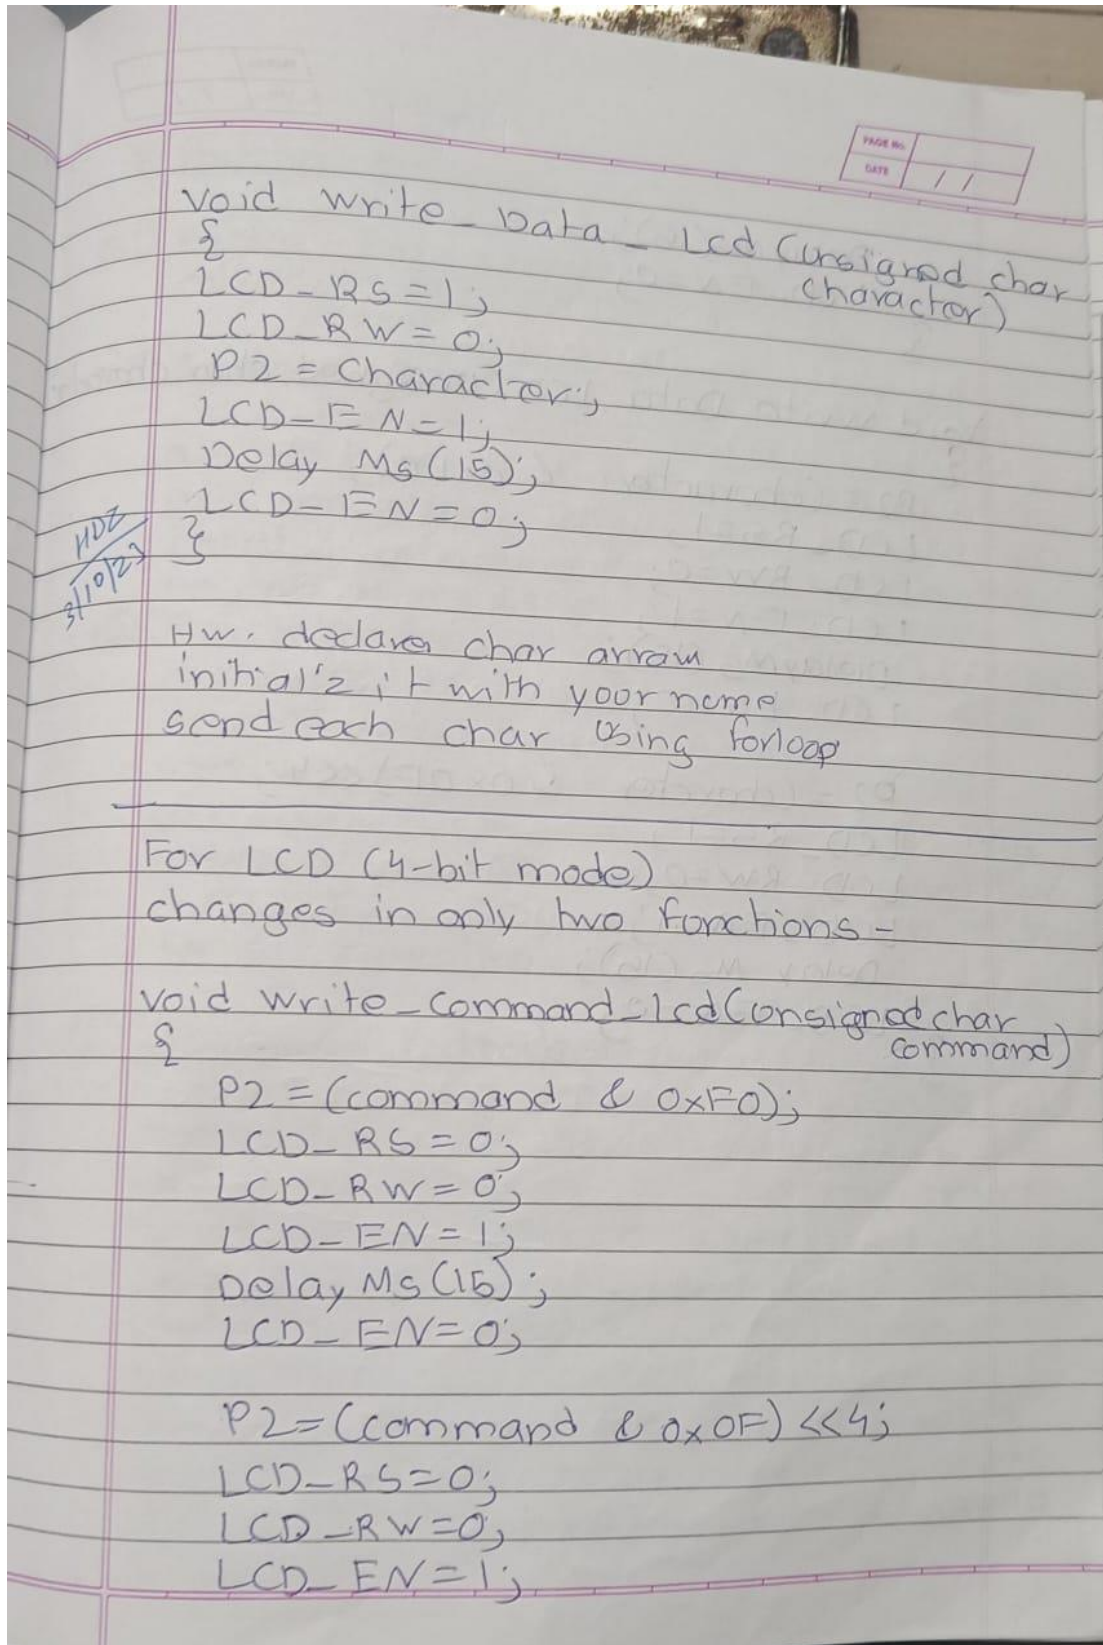 PAGE No.
DATE / /
void write_Data_Lcd (unsigned char
charactor)
{
LCD_RS=1;
LCD_RW=0;
P2 = Character;
LCD_EN=1;
Delay Ms(15);
LCD_EN=0;
}
3/10/23
Hw. declare char array
initial'z it with your name
send each char using forloop
For LCD (4-bit mode)
changes in only two functions-
void write_command_lcd(unsigned char
command)
{
P2=(command & 0xF0);
LCD_RS=0;
LCD_RW=0;
LCD_EN=1;
Delay Ms(15);
LCD_EN=0;
P2=(command & 0x0F)<<4;
LCD_RS=0;
LCD_RW=0;
LCD_EN=1;